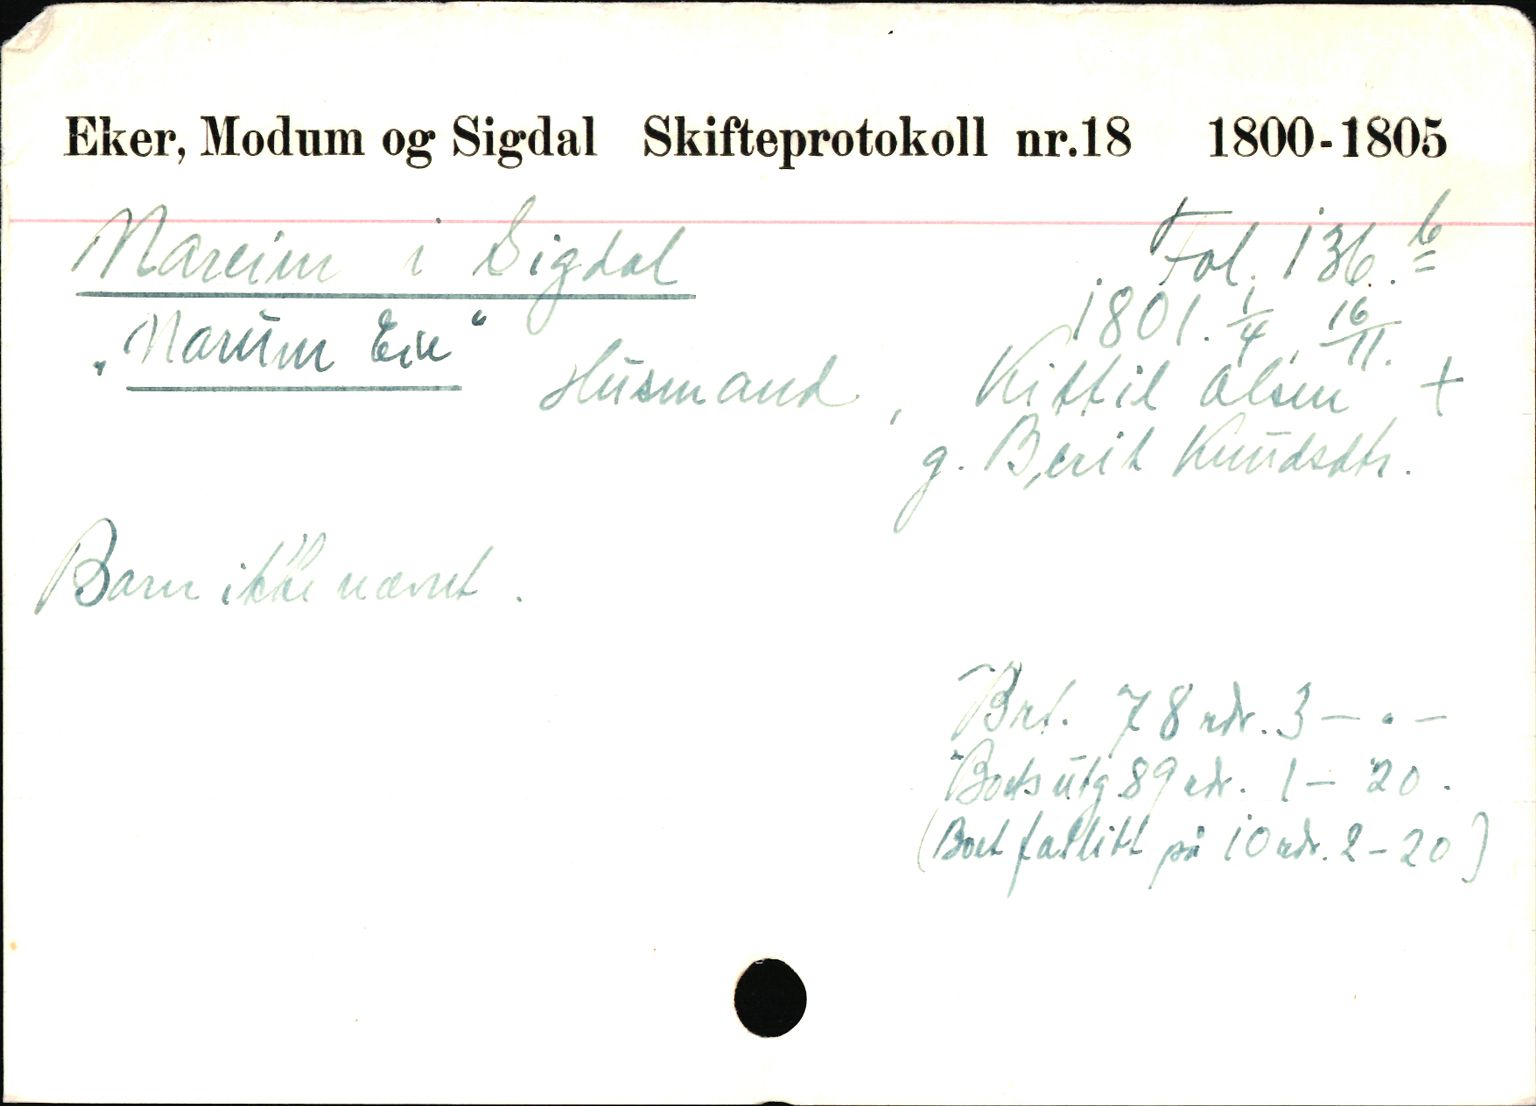 Eker, Modum og Sigdal Skifteprotokoll nr.18 1800-1805
Nareim i Sigdal Fol. 136.b
1801. 1/4, 16/11.
„Narüm Eie“ Hüsmand, Kittil Olsen +
g. Berit Knüdsdtr.
Barn ikke nævnt.
Brt. 78 rdr. 3 — . —
Boets ütg 89 rdr. 1 — 20.
(Boet fallitt på 10 rdr. 2 - 20)